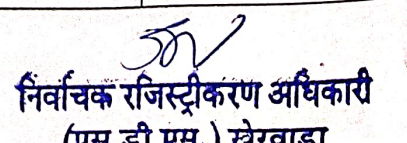 निर्वाचक रजिस्ट्रीकरण अधिकारी
(एस.डी.एम.) खेरवाडा